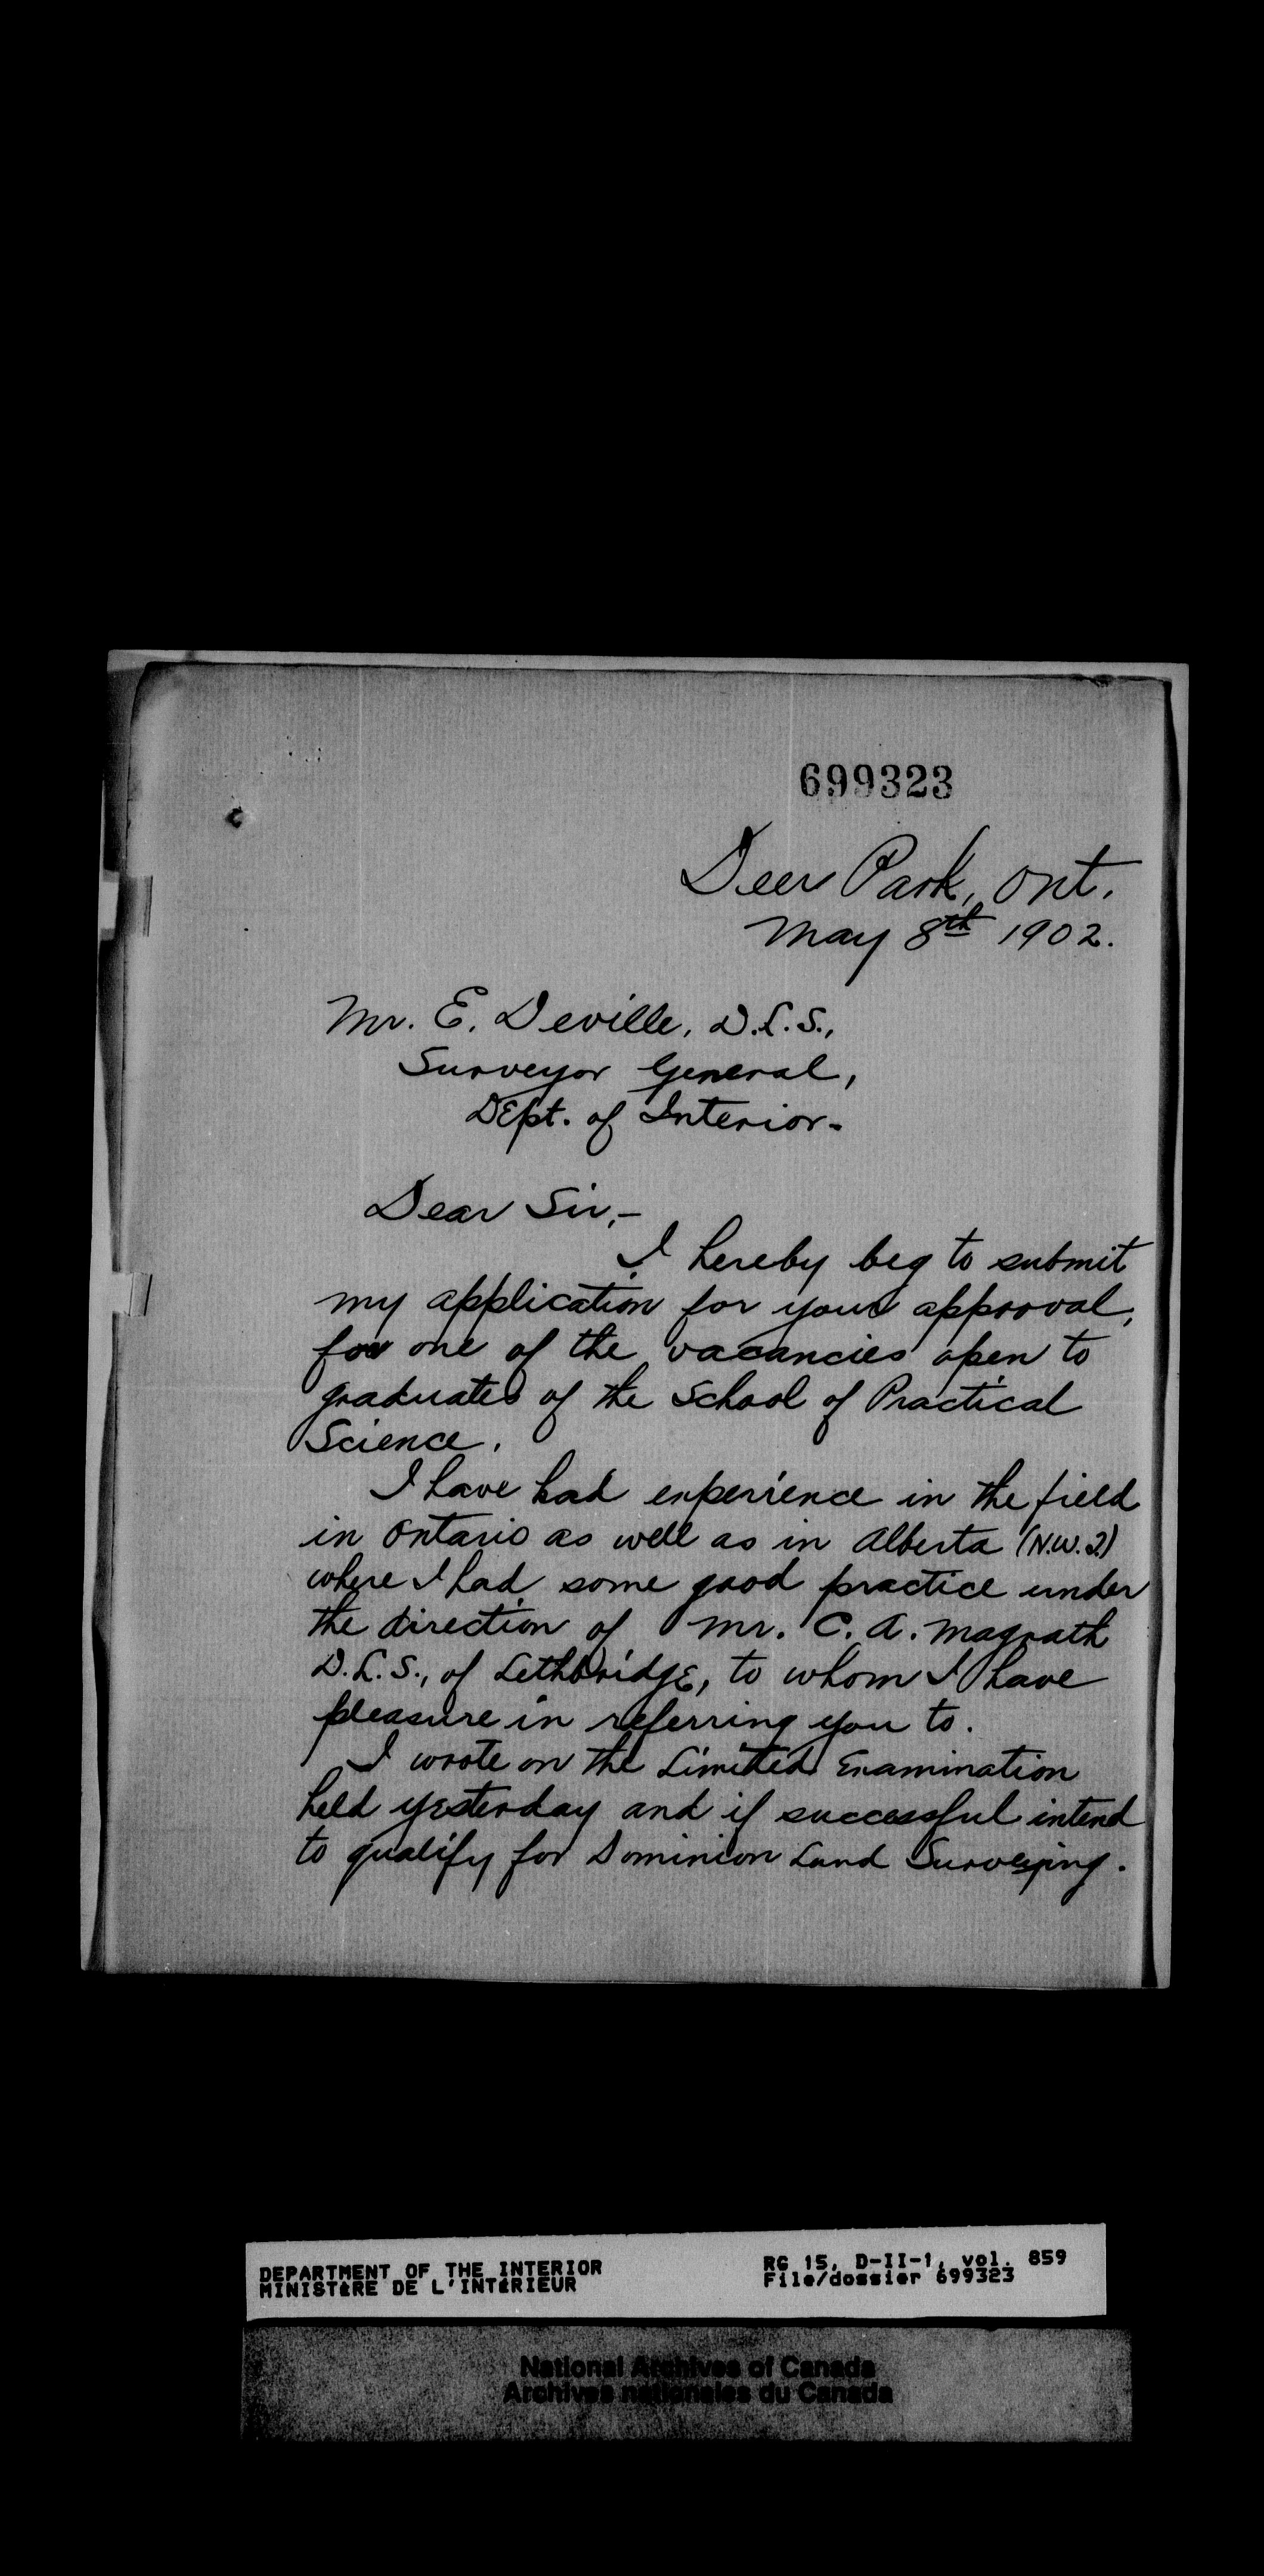 699323
Deer Park, Ont.
May 8th 1902.
Mr. E. Deville, D.L.S.,
Surveyor General,
Dept. of Interior.
Dear Sir,-
I hereby beg to submit
my application for your approval,
for one of the vacancies open to
graduates of the School of Practical
Science.
I have had experience in the field
in Ontario as well as in Alberta (N.W.T.)
where I had some good practice under
the direction of Mr. C. A. Magrath
D.L.S., of Lethbridge, to whom I have
pleasure in referring you to.
I wrote on the Limited Examination
held yesterday and if successful intend
to qualify for Dominion Land Surveying.
DEPARTMENT OF THE INTERIOR
MINISTÈRE DE L'INTÉRIEUR
RG 15, D-II-1, vol. 859
File/dossier 699323
National Archives of Canada
Archives nationales du Canada